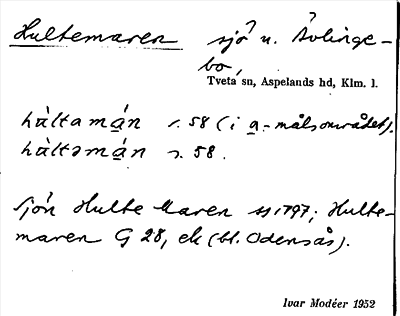 Hultemaren sjö n. Åvlinge-
bo,
Tveta sn, Aspelands hd, Klm. l.
hàltamán s. 58 (i a-målsområdet).
hàltəmán s. 58.
sjön Hulte Maren 1797; Hulte-
maren G 28, ek (bl. Odensås).
Ivar Modéer 1952